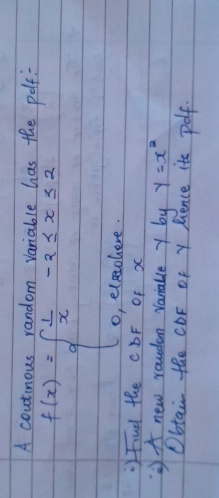 A continous random variable has the pdf:-
f(x) = { 1/x -2 ≤ x ≤ 2
0, elsewhere.
i) Find the CDF of x
2) A new random variable Y by Y = x²
Obtain the CDF of Y hence its pdf.